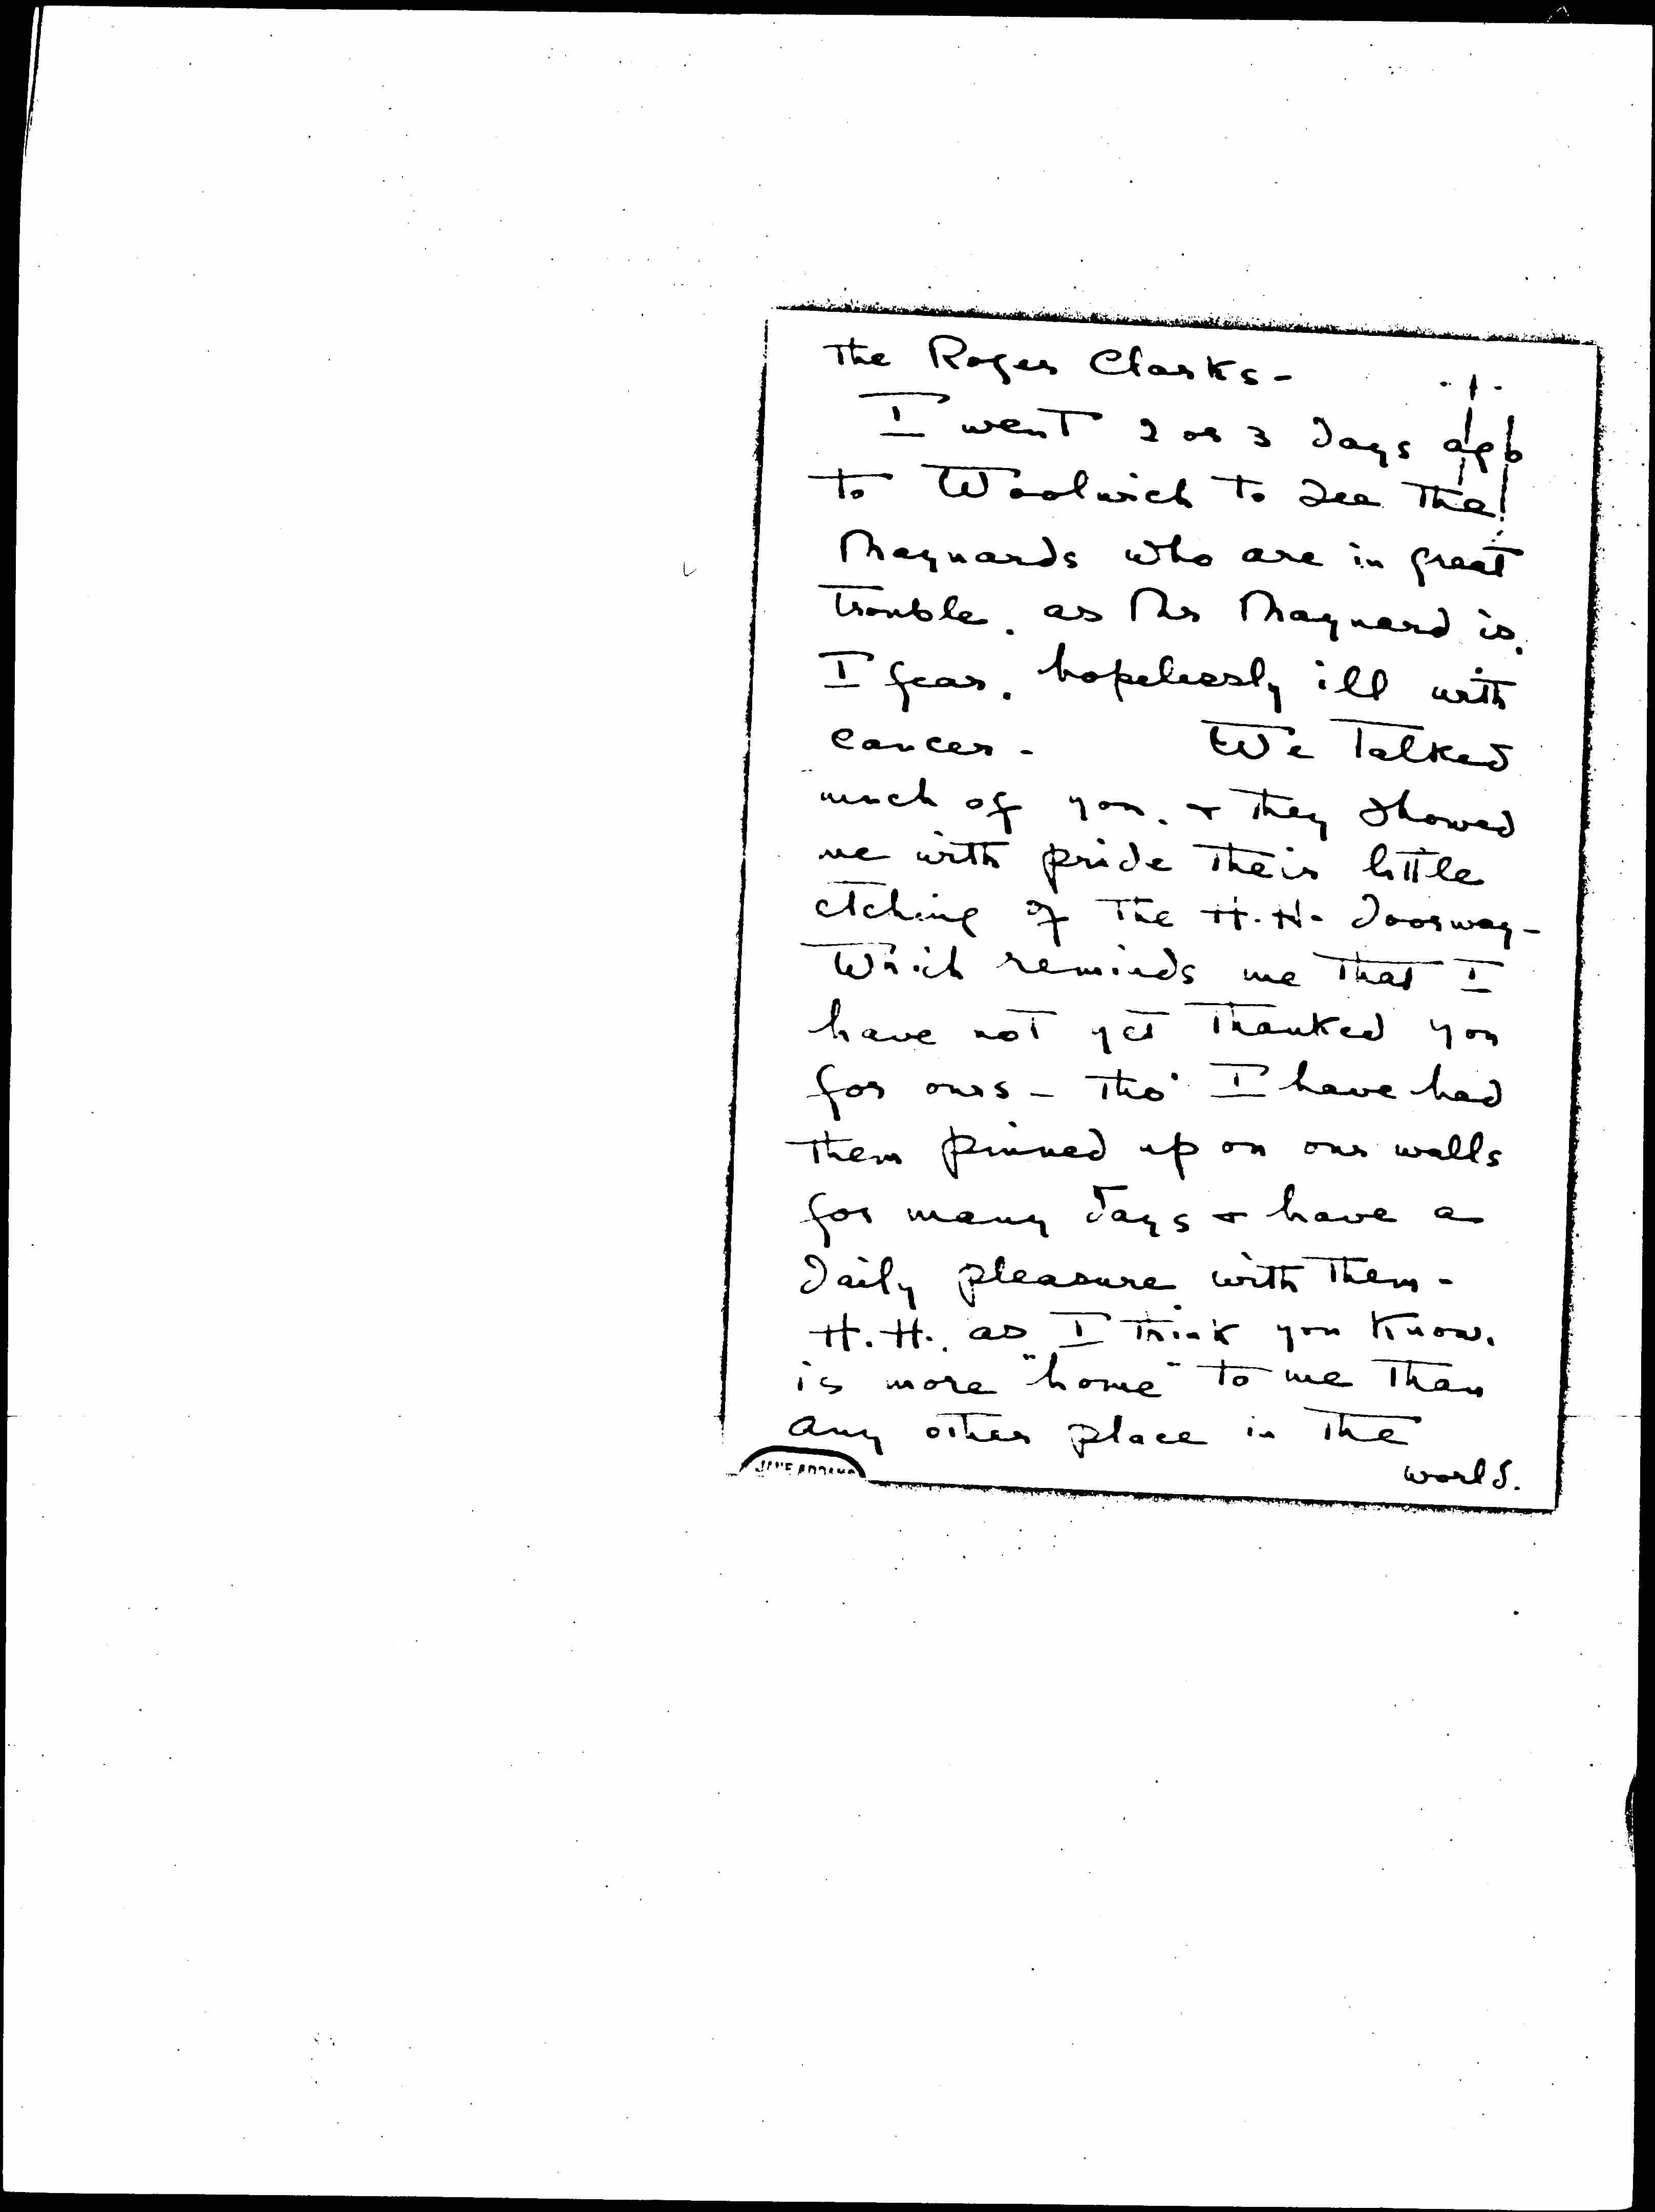 The Roger Clarks -
I went 2 or 3 days ago
to Woolwich to see the
Maynards who are in great
trouble, as Mr Maynard is,
I fear, hopelessly ill with
cancer - We talked
much of you, & they showed
me with pride their little
etching of the H.H. doorway -
Which reminds me that I
have not yet thanked you
for ours - tho' I have had
them pinned up on our walls
for many days & have a
daily pleasure with them -
H.H., as I think you know,
is more "home" to me than
any other place in the
world.
JANE ADDAMS